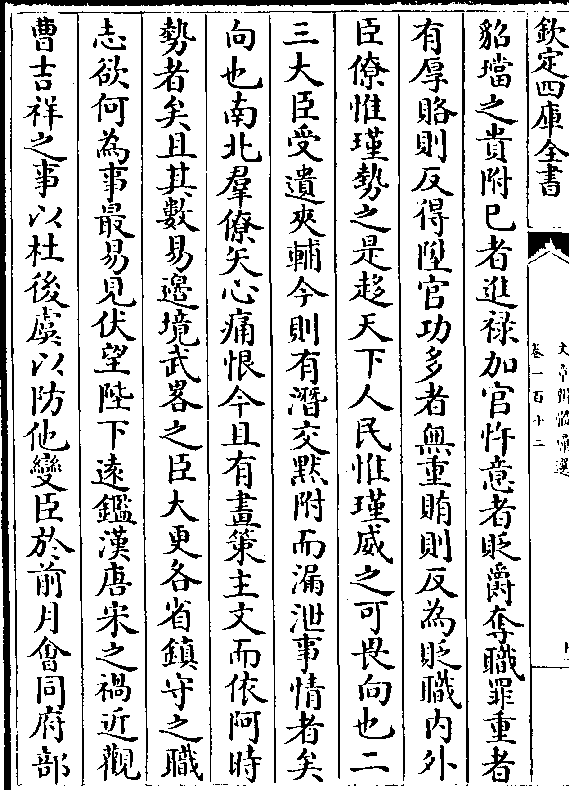 欽定四庫全書
文章辨體彙選
卷一百十二
貂璫之貴附已者進祿加官忤意者貶爵奪職罪重者
有厚賂則反得陞官功多者無重賄則反為貶職内外
臣僚惟瑾勢之是趍天下人民惟瑾威之可畏向也二
三大臣受遺夾輔今則有潛交黙附而漏泄事情者矣
向也南北羣僚矢心痛恨今且有畫策主文而依阿時
勢者矣且其數易邊境武畧之臣大更各省鎮守之職
志欲何為事最易見伏望陛下遠鑑漢唐宋之禍近觀
曹吉祥之事以杜後虞以防他變臣於前月會同府部